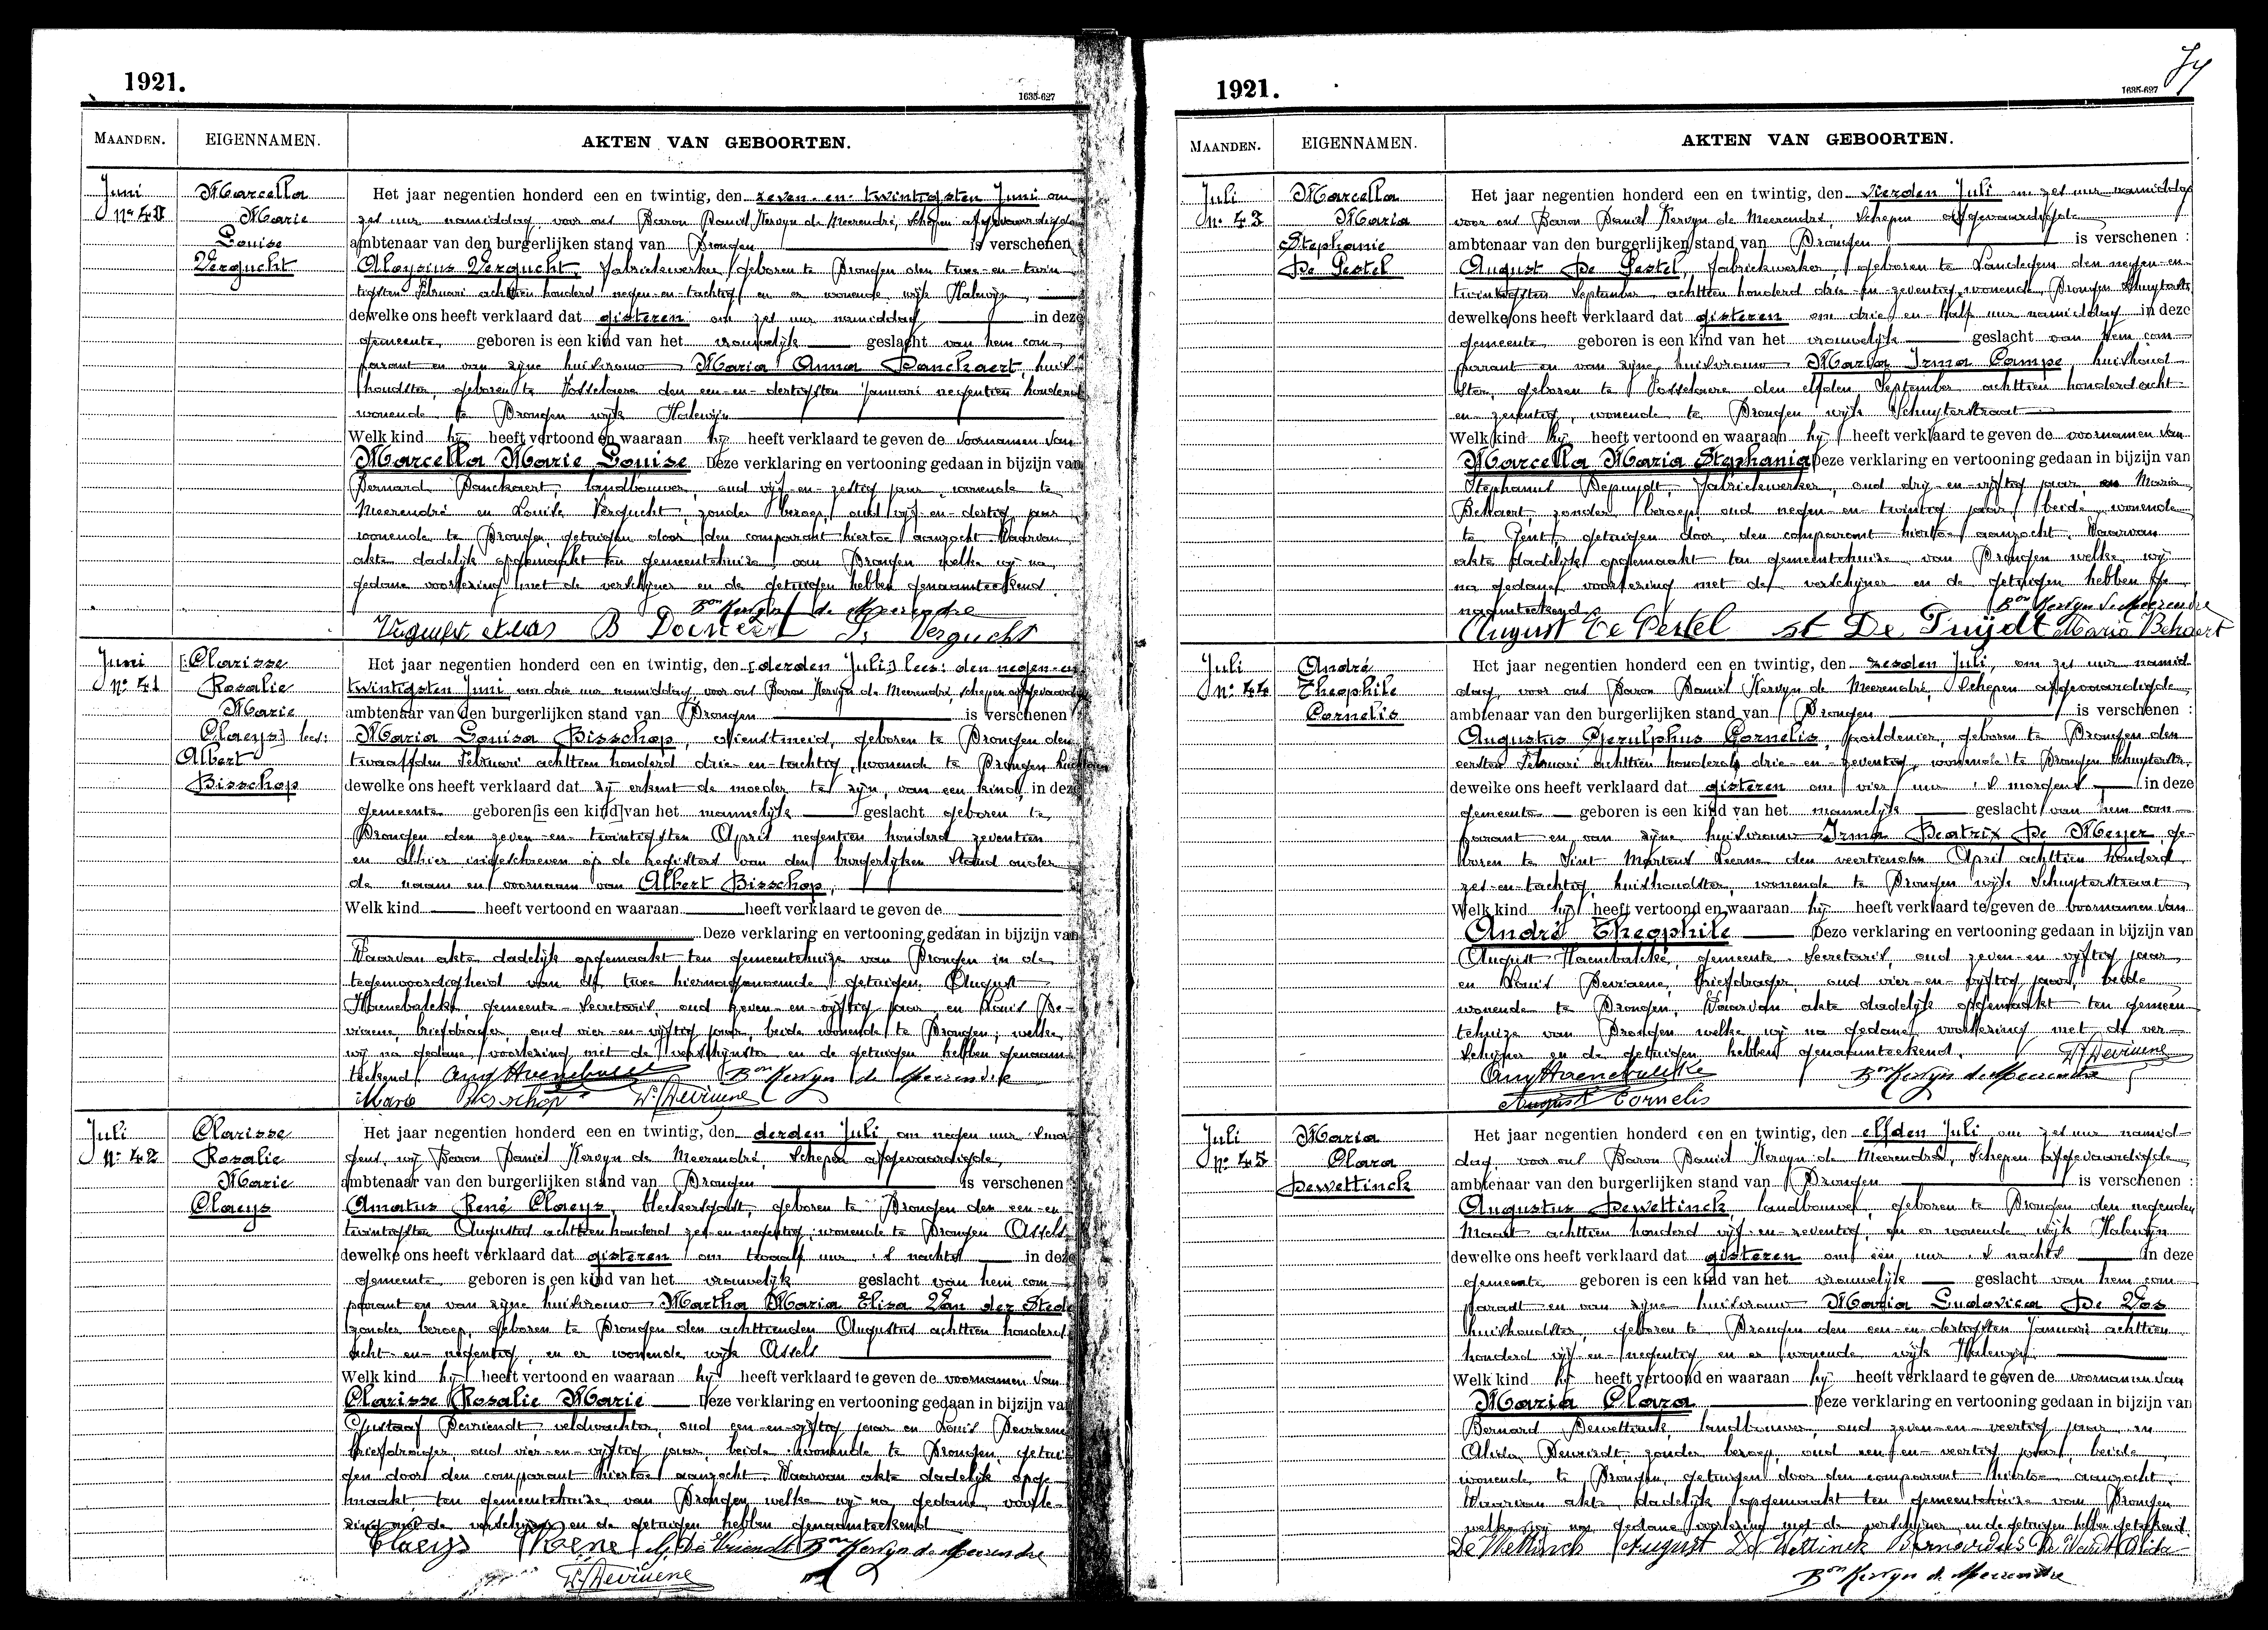 1921.
1635-627
MAANDEN.
EIGENNAMEN.
AKTEN VAN GEBOORTEN.
Juni
Nº 40
Marcella
Marie
Louise
Vergucht
Het jaar negentien honderd een en twintig, den zeven-en-twintigsten Juni om
zes uur namiddag, voor ons Baron Daniël Kervyn de Meerendré, Schepen afgevaardigde
ambtenaar van den burgerlijken stand van Drongen is verschenen
Aloysius Vergucht, fabriekwerker, geboren te Drongen den twee-en-twin-
tigsten Februari achttien honderd negen-en-tachtig en er wonende wijk Halewijn
dewelke ons heeft verklaard dat gisteren om zes uur namiddag in deze
gemeente geboren is een kind van het vrouwelijk geslacht van hem com-
parant en van zijne huisvrouw Maria Anna Danckaert, huis-
houdster, geboren te Vosselaere den een-en-dertigsten Januari negentien honderd
wonende te Drongen wijk Halewijn
Welk kind hij heeft vertoond en waaraan hij heeft verklaard te geven de voornamen van
Marcella Marie Louise Deze verklaring en vertooning gedaan in bijzijn van
Bernard Danckaert, landbouwer, oud vijf-en-zestig jaar, wonende te
Meerendré en Louise Vergucht, zonder beroep, oud vijf-en-dertig jaar
wonende te Drongen, getuigen door den comparant hiertoe aanzocht. Waarvan
akte dadelijk opgemaakt ten gemeentehuize van Drongen welke wij na
gedane voorlezing met de verschijner en de getuigen hebben genaamteekend.
Bon Kervyn de Meerendre
B L. Vergucht
Juni
Nº 41
[Clarisse
Rosalie
Marie
Claeys] lees:
Albert
Bisschop
Het jaar negentien honderd een en twintig, den [derden Juli] lees: den negen-en
twintigsten Juni om drie uur namiddag, voor ons Baron Kervyn de Meerendré, schepen afgevaardigde
ambtenaar van den burgerlijken stand van Drongen is verschenen
Maria Louisa Bisschop, dienstmeid, geboren te Drongen den
twaalfden Februari achttien honderd drie-en-tachtig, wonende te Drongen
dewelke ons heeft verklaard dat zij erkent de moeder te zijn, van een kind, in deze
gemeente geboren [is een kind] van het mannelijk geslacht geboren te
Drongen den zeven-en-twintigsten April negentien honderd zeventien
en alhier ingeschreven op de registers van den burgerlijken Stand onder
de naam en voornaam van Albert Bisschop,
Welk kind heeft vertoond en waaraan heeft verklaard te geven de
Deze verklaring en vertooning gedaan in bijzijn van
Waarvan akte dadelijk opgemaakt ten gemeentehuize van Drongen in de
tegenwoordigheid van de twee hiernagenoemde getuigen, August
Haenebalcke, gemeente-Secretaris, oud zeven-en-vijftig jaar en Louis De-
viaene, briefdrager, oud vier-en-vijftig jaar, beide wonende te Drongen; welke
wij na gedane voorlezing met de verschijnster en de getuigen hebben genaam-
teekend. Aug Haenebalcke Bon Kervyn de Meerendre
Maria Bisschop L. Deviaene
Juli
Nº 42
Clarisse
Rosalie
Marie
Claeys
Het jaar negentien honderd een en twintig, den derden Juli om negen uur 's mor-
gens, wij Baron Daniël Kervyn de Meerendré, Schepen afgevaardigde,
ambtenaar van den burgerlijken stand van Drongen is verschenen
Amatus René Claeys, bleekersgast, geboren te Drongen den een-en-
twintigsten Augustus achttien honderd zes-en-negentig, wonende te Drongen Assels
dewelke ons heeft verklaard dat gisteren om twaalf uur 's nachts in deze
gemeente geboren is een kind van het vrouwelijk geslacht van hem com-
parant en van zijne huisvrouw Martha Maria Eliza Van der Stede
zonder beroep, geboren te Drongen den achttienden Augustus achttien honderd
acht-en-negentig, en er wonende wijk Assels
Welk kind hij heeft vertoond en waaraan hij heeft verklaard te geven de voornamen van
Clarisse Rosalie Marie Deze verklaring en vertooning gedaan in bijzijn van
Gustaaf Devriendt, veldwachter, oud een-en-vijftig jaar en Louis Deviaene
briefdrager, oud vier-en-vijftig jaar, beide wonende te Drongen, getui-
gen door den comparant hiertoe aanzocht. Waarvan akte dadelijk opge-
maakt ten gemeentehuize van Drongen welke wij na gedane voorle-
zing met de verschijner en de getuigen hebben genaamteekend
Claeys Rene G. De Vriendt Bon Kervyn de Meerendre
L. Deviaene
1921.
1635-627
74
MAANDEN.
EIGENNAMEN.
AKTEN VAN GEBOORTEN.
Juli
Nº 43
Marcella
Maria
Stephanie
De Pestel
Het jaar negentien honderd een en twintig, den vierden Juli om zes uur namiddag
voor ons Baron Daniël Kervyn de Meerendré, Schepen afgevaardigde
ambtenaar van den burgerlijken stand van Drongen is verschenen :
August De Pestel, fabriekwerker, geboren te Landegem den negen-en-
twintigsten September achttien honderd drie-en-zeventig, wonende Drongen Schuyterstr.
dewelke ons heeft verklaard dat gisteren om drie en half uur namiddag in deze
gemeente geboren is een kind van het vrouwelijk geslacht van hem com-
parant en van zijne huisvrouw Maria Irma Campe, huishoud-
ster, geboren te Vosselaere den elfden September achttien honderd acht-
en-zeventig, wonende te Drongen wijk Schuyterstraat
Welk kind hij heeft vertoond en waaraan hij heeft verklaard te geven de voornamen van
Marcella Maria Stephania Deze verklaring en vertooning gedaan in bijzijn van
Stephanus Depuydt, fabriekwerker, oud drij-en-vijftig jaar, en Maria
Behaert, zonder beroep, oud negen-en-twintig jaar, beide wonende
te Gent, getuigen door den comparant hiertoe aanzocht. Waarvan
akte dadelijk opgemaakt ten gemeentehuize van Drongen welke wij
na gedane voorlezing met de verschijner en de getuigen hebben ge-
naamteekend. Bon Kervyn de Meerendre
August De Pestel st De Puijdt Maria Behaert
Juli
Nº 44
André
Theophile
Cornelis
Het jaar negentien honderd een en twintig, den zesden Juli, om zes uur namid-
dag, voor ons Baron Daniël Kervyn de Meerendré, Schepen afgevaardigde,
ambtenaar van den burgerlijken stand van Drongen is verschenen :
Augustus Gerulphus Cornelis, poeldenier, geboren te Drongen den
eersten Februari achttien honderd drie-en-zeventig, wonende te Drongen Schuyterstr.
dewelke ons heeft verklaard dat gisteren om vier uur 's morgens in deze
gemeente geboren is een kind van het mannelijk geslacht van hem com-
parant en van zijne huisvrouw Irma Beatrix De Meyer, ge-
boren te Sint Martens Leerne den veertienden April achttien honderd
zes-en-tachtig, huishoudster, wonende te Drongen wijk Schuyterstraat
Welk kind hij heeft vertoond en waaraan hij heeft verklaard te geven de voornamen van
André Theophile Deze verklaring en vertooning gedaan in bijzijn van
August Haenebalcke, gemeente-Secretaris, oud zeven-en-vijftig jaar
en Louis Deviaene, briefdrager, oud vier-en-vijftig jaar, beide
wonende te Drongen, Waarvan akte dadelijk opgemaakt ten gemeen-
tehuize van Drongen welke wij na gedane voorlezing met de ver-
schijner en de getuigen hebben genaamteekend. L. Deviaene
Aug Haenebalcke Bon Kervyn de Meerendre
August Cornelis
Juli
Nº 45
Maria
Clara
Dewettinck
Het jaar negentien honderd een en twintig, den elfden Juli om zes uur namid-
dag, voor ons Baron Daniël Kervyn de Meerendré, Schepen afgevaardigde,
ambtenaar van den burgerlijken stand van Drongen is verschenen :
Augustus Dewettinck, landbouwer, geboren te Drongen den negenden
Maart achttien honderd vijf-en-zeventig, en er wonende wijk Halewyn
dewelke ons heeft verklaard dat gisteren om één uur 's nachts in deze
gemeente geboren is een kind van het vrouwelijk geslacht van hem com-
paradt en van zijne huisvrouw Maria Ludovica De Vos
huishoudster, geboren te Drongen den een-en-dertigsten Januari achttien
honderd vijf-en-negentig en er wonende wijk Halewyn.
Welk kind hij heeft vertoond en waaraan hij heeft verklaard te geven de voornamen van
Maria Clara Deze verklaring en vertooning gedaan in bijzijn van
Bernard Dewettinck, landbouwer, oud zeven-en-veertig jaar, en
Alida zonder beroep, oud een-en-veertig jaar, beide
wonende te Drongen, getuigen door den comparant hiertoe aanzocht.
Waarvan akte dadelijk opgemaakt ten gemeentehuize van Drongen
welke wij na gedane voorlezing met de verschijner en de getuigen hebben geteekend.
De Wettinck August De Wettinck Bernardus Alida
Bon Kervyn de Meerendre